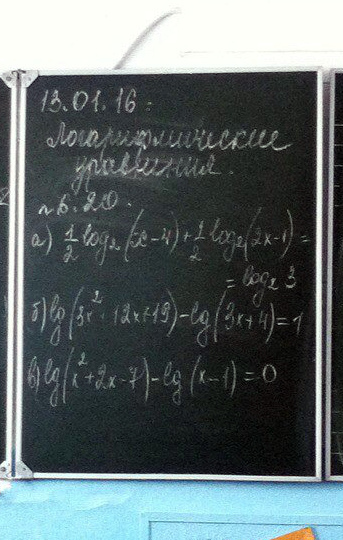 13.01.16:
Логарифмические
уравнения.
№6.20.
а) 1/2 log₂(x-4)+1/2 log₂(2x-1)=
= log₂ 3
б) lg(3x²+12x+19)-lg(3x+4)=1
в) lg(x²+2x-7)-lg(x-1)=0